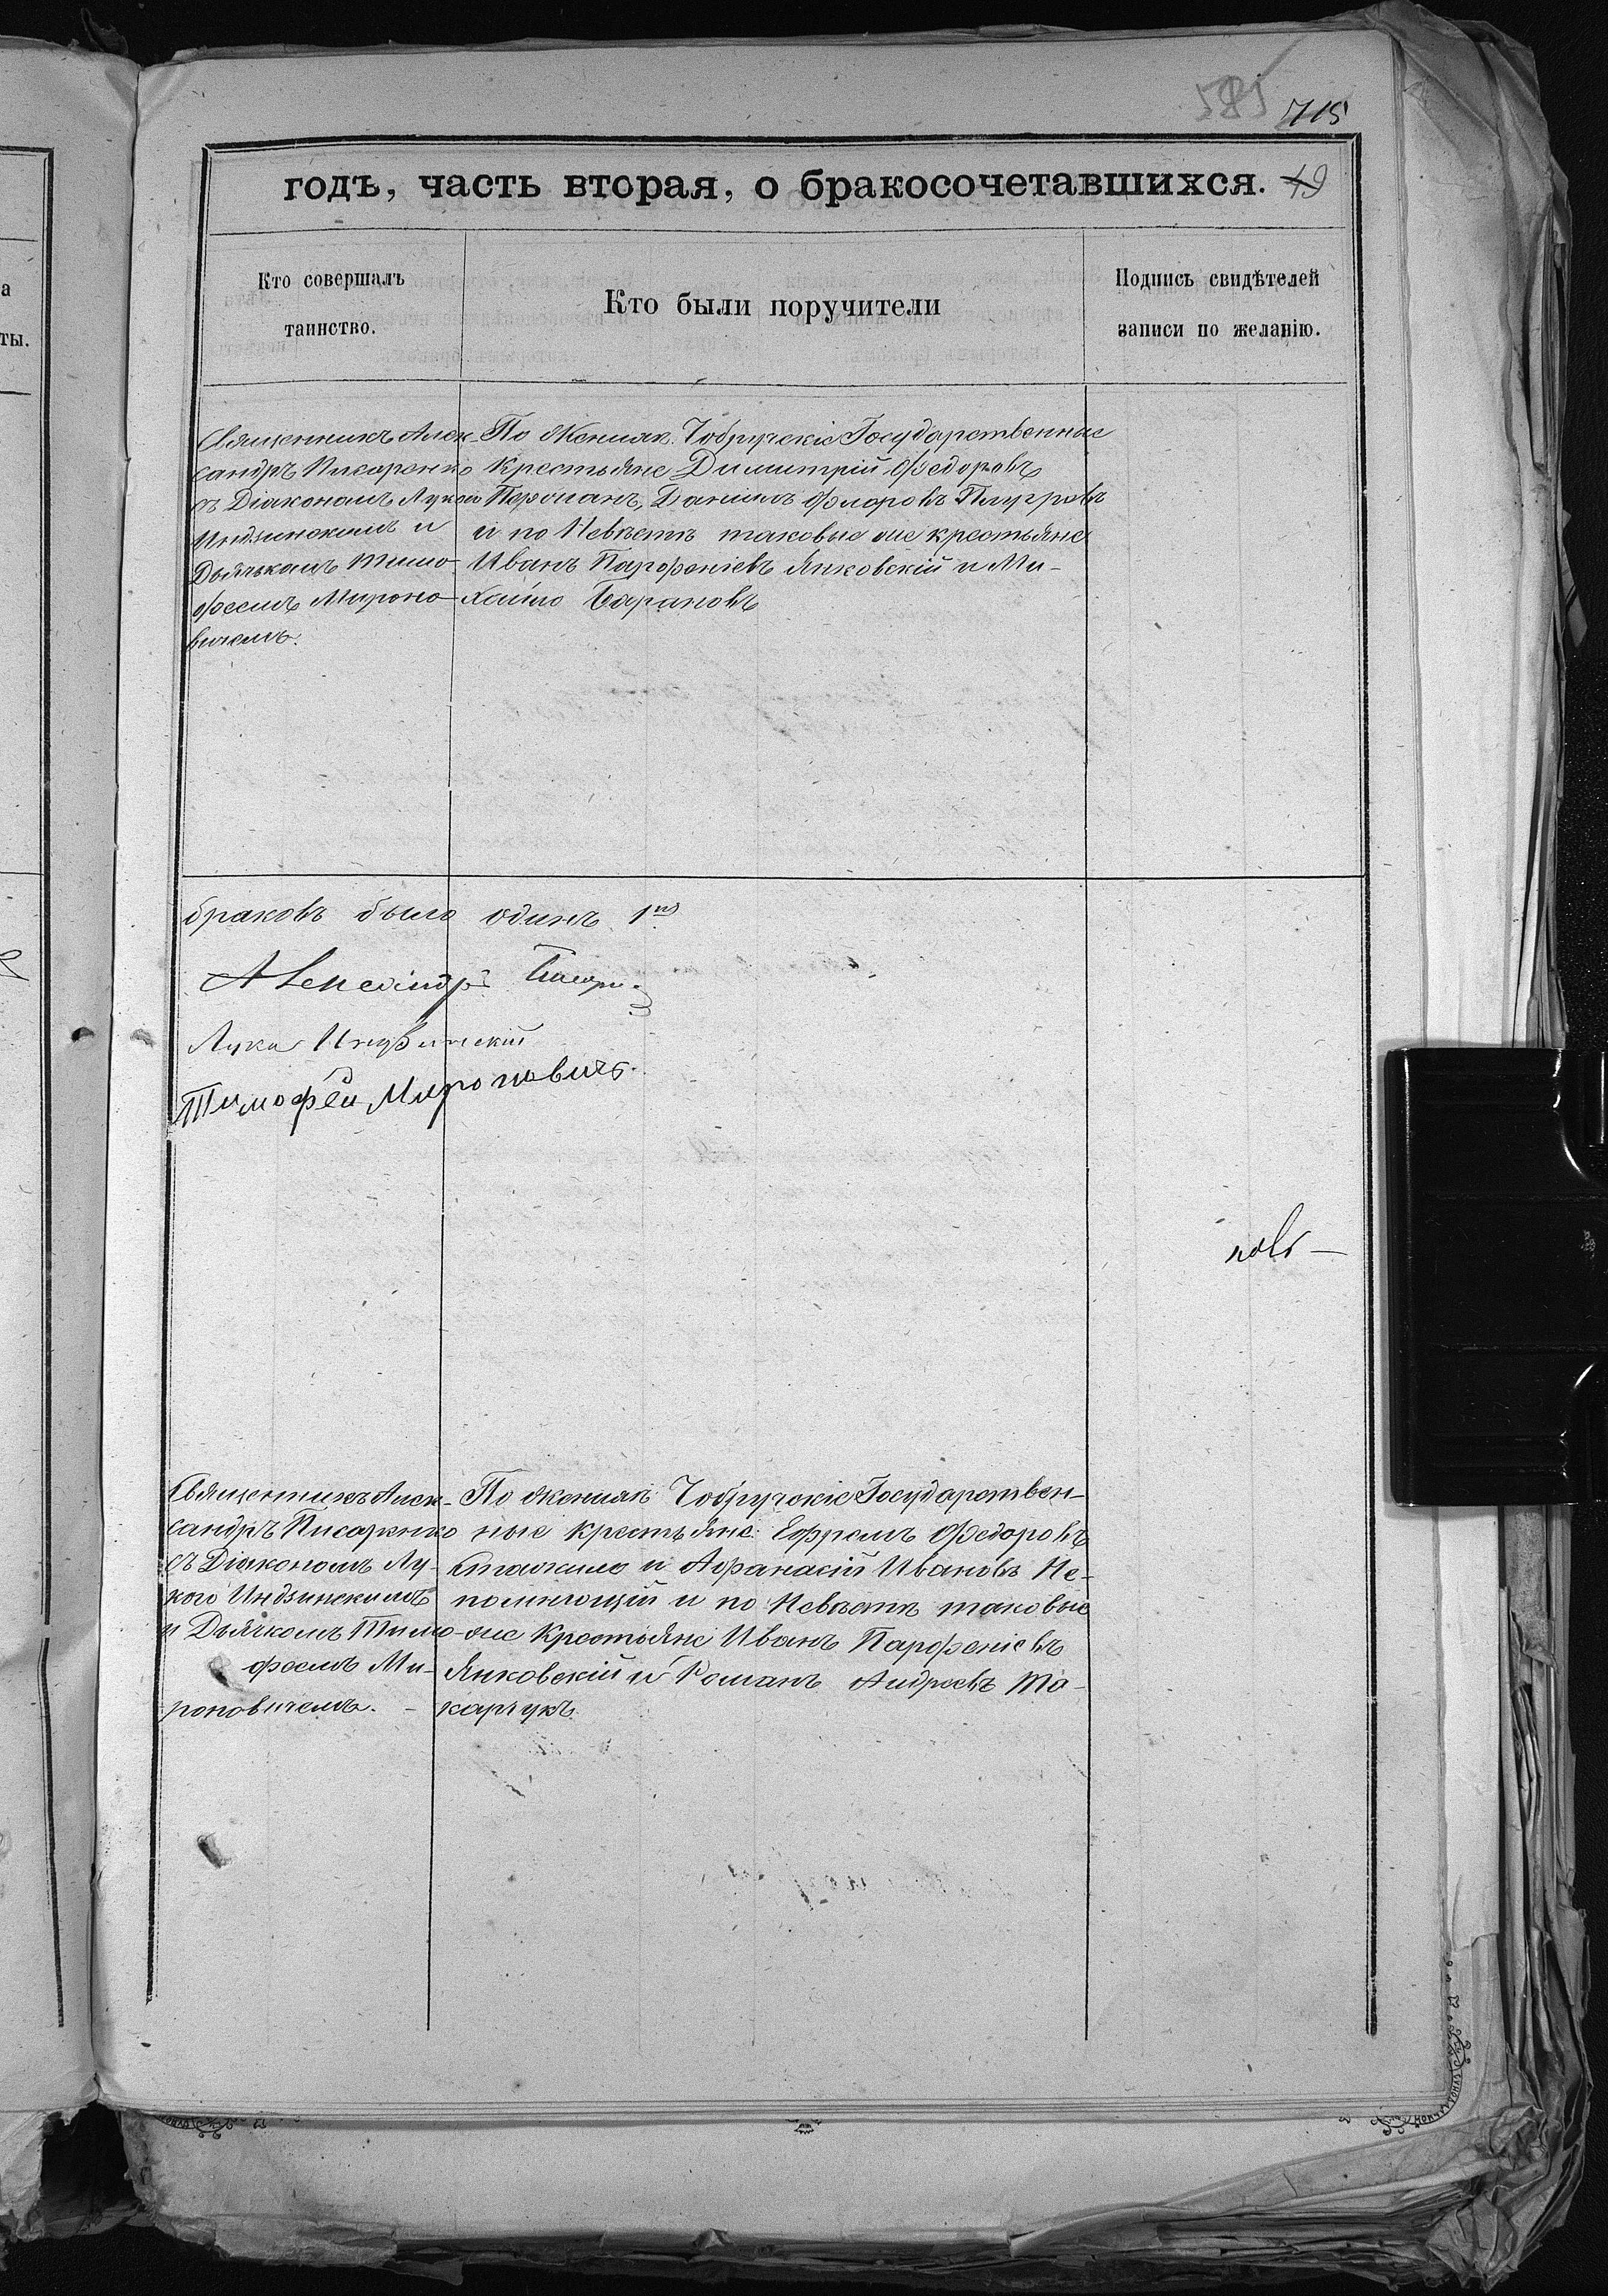 585 715
годъ, часть вторая, о бракосочетавшихся. 49
Кто совершалъ
таинство.
Кто были поручители
Подпись свидѣтелей
записи по желанію.
а
ты.
Священникъ Алек-
сандръ Писаренко
съ Діакономъ Лукою
Индзинскимъ и
Дьячкомъ Тимо-
феемъ Мироно-
вичемъ.
По Женихѣ Чобручскіе Государственные
Крестьяне Димитрій Федоровъ
Даніилъ Флоровъ
и по Невѣстѣ таковые же крестьяне
Иванъ Парфеніевъ Янковскій и Ми-
хаило Барановъ
браковъ было одинъ 1
Александръ
Лука Индзинскій
Тимофей Мироновичъ.
Священникъ Алек-
сандръ Писаренко
съ Діакономъ Лу-
кою Индзинскимъ
и Дьячкомъ Тимо-
феемъ Ми-
роновичемъ. -
По женихѣ Чобручскіе Государствен-
ные крестьяне: Ефремъ Федоровъ
и Афанасій Ивановъ Не-
помнющій и по Невѣстѣ таковые
же Крестьяне Иванъ Парфеніевъ
Янковскій и Романъ Андреевъ Ма-
карчукъ.